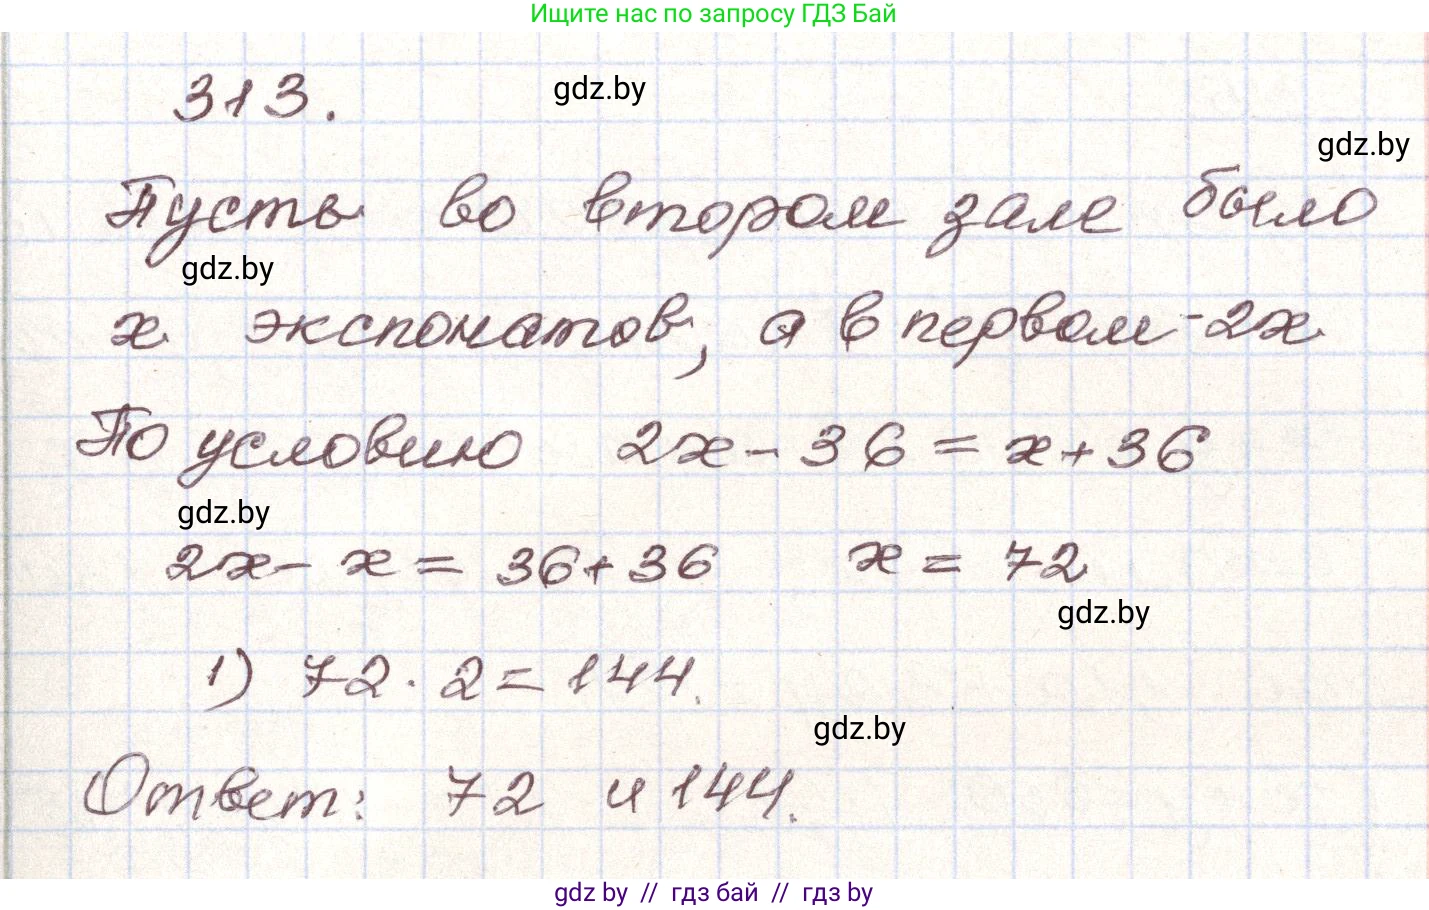 Ищите нас по запросу ГДЗ Бай
313.
gdz.by
gdz.by
Пусть во втором зале было
gdz.by
x экспонатов, а в первом - 2x
По условию 2x - 36 = x + 36
gdz.by
2x - x = 36 + 36 x = 72
gdz.by
1) 72 · 2 = 144.
gdz.by
Ответ: 72 и 144.
gdz by // гдз бай // гдз by